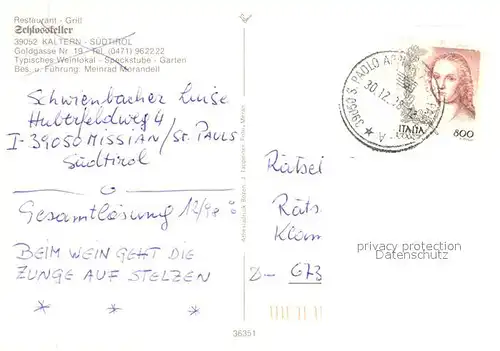 Restaurant - Grill
Schlosskeller
39052 KALTERN - SÜDTIROL
Goldgasse Nr. 19 - Tel. (0471) 962222
Typisches Weinlokal - Speckstube - Garten
Bes. u. Führung: Meinrad Morandell
Schwienbacher Luise
Huberfeldweg 4
I-39050 MISSIAN/ST. PAULS
Südtirol
Gesamtlösung 12/98:
BEIM WEIN GEHT DIE
ZUNGE AUF STELZEN
* * *
39050 S. PAOLO
30.12.
ITALIA
800
Rätsel
Räts
Klam
D- 673
privacy protection
watermark
36351